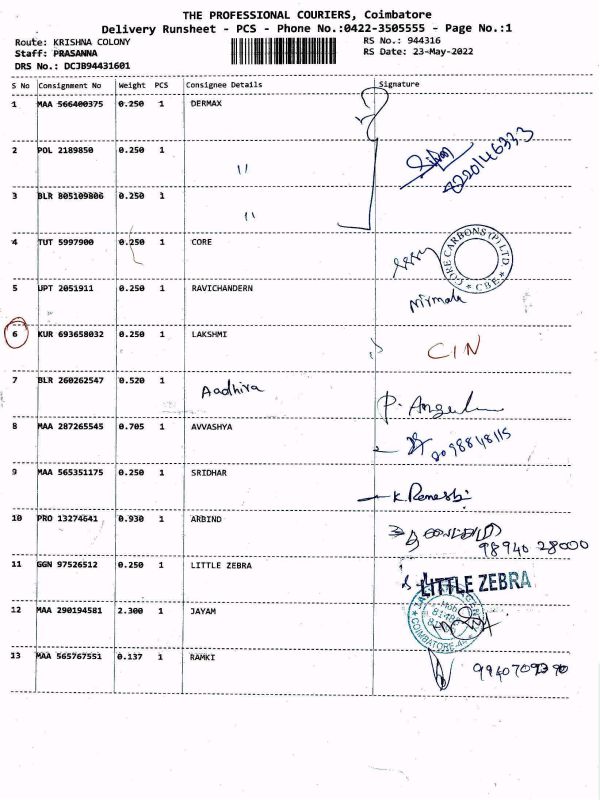 THE PROFESSIONAL COURIERS, Coimbatore
Delivery Runsheet - PCS - Phone No.:0422-3505555 - Page No.:1
Route: KRISHNA COLONY
RS No.: 944316
Staff: PRASANNA
RS Date: 23-May-2022
DRS No.: DCJB94431601
S No Consignment No Weight PCS Consignee Details Signature
1 MAA 566400375 0.250 1 DERMAX
2 POL 2189850 0.250 1 "
8220146333
3 BLR 805109806 0.250 1 "
4 TUT 5997900 0.250 1 CORE
CORE CARBONS (P) LTD. * CBE *
5 UPT 2051911 0.250 1 RAVICHANDERN Nirmala
6 KUR 693658032 0.250 1 LAKSHMI CIN
7 BLR 260262547 0.520 1 Aadhira
8 MAA 287265545 0.705 1 AVVASHYA
9 MAA 565351175 0.250 1 SRIDHAR
10 PRO 13274641 0.930 1 ARBIND
98940 28000
11 GGN 97526512 0.250 1 LITTLE ZEBRA LITTLE ZEBRA
12 MAA 290194581 2.300 1 JAYAM
COIMBATORE
13 MAA 565767551 0.137 1 RAMKI